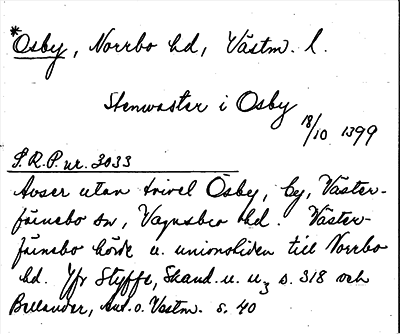 *Osby, Norrbo hd, Västm. l.
Stenwaster i Osby
18/10 1399
S.R.P. nr. 3033
Avser utan tvivel Osby, by, Väster-
färnebo sn, Vagnsbro hd. Väster-
färnebo hörde u. unionstiden till Norrbo
hd. Jfr Styffe, Skand. u. u₃ s. 318 och
Bellander, Ant. o. Västm. s. 40